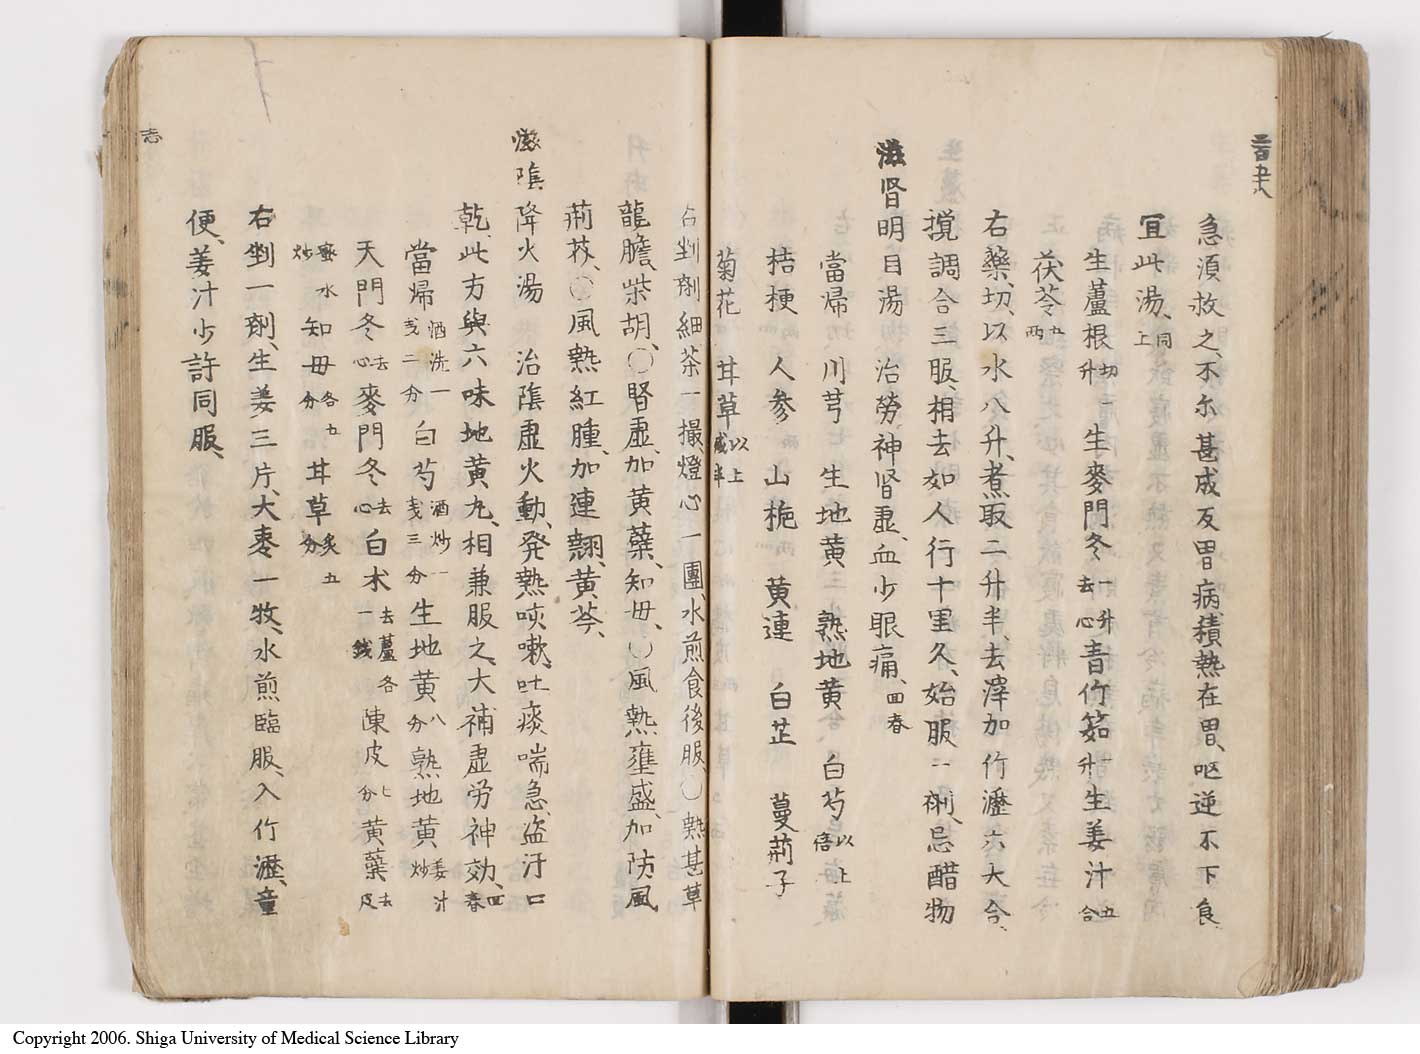 急須救之、不尓甚成反胃病、積熱在胃、呕逆不下食
宜此湯、同上
生蘆根切一升 生麥門冬一升去心 青竹筎一升 生姜汁五合
茯苓五両
右藥、切、以水八升、煮取二升半、去滓加竹瀝六大合、
撹調合三服、相去如人行十里久、始服一剤、忌醋物
滋肾明目湯 治勞神肾虚、血少眼痛、四春
當帰 川芎 生地黄 熟地黄 白芍以上倍
桔梗 人参 山梔 黄連 白芷 蔓荊子
菊花 甘草以上咸半
右剉剤細茶一撮、燈心一團、水煎食後服、〇熱甚草
龍膽、柴胡、〇腎虚、加黄蘗、知母、〇風熱壅盛、加防風
荊芥、〇風熱紅腫、加連翹、黄芩、
滋陰降火湯 治陰虚火動、発熱咳嗽、吐痰喘急、盗汗口
乾、此方與六味地黄丸、相兼服之、大補虚労神効、四春
當帰酒洗一戔二分 白芍酒炒一戔三分 生地黄八分 熟地黄姜汁炒
天門冬去心 麥門冬去心 白朮去蘆各一銭 陳皮七分 黄蘗去皮
蜜水炒 知母各五分 甘草炙五分
右剉一剤、生姜三片、大枣一牧、水煎臨服、入竹瀝、童
便、姜汁少許同服、
志
Copyright 2006. Shiga University of Medical Science Library